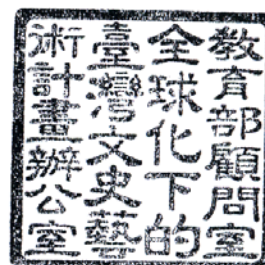 教育部顧問室
全球化下的
臺灣文史藝
術計畫辦公室